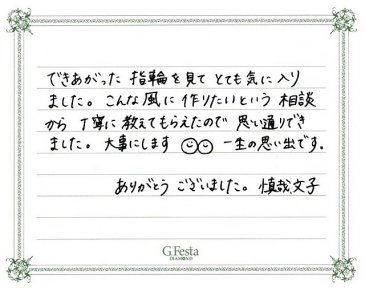 できあがった 指輪を見て とても気に入り
ました。こんな風に 作りたいという 相談
から 丁寧に 教えてもらえたので 思い通りでき
ました。大事にします ☺☺ 一生の思い出です。
ありがとう ございました。 慎哉、文子
G.Festa
DIAMOND